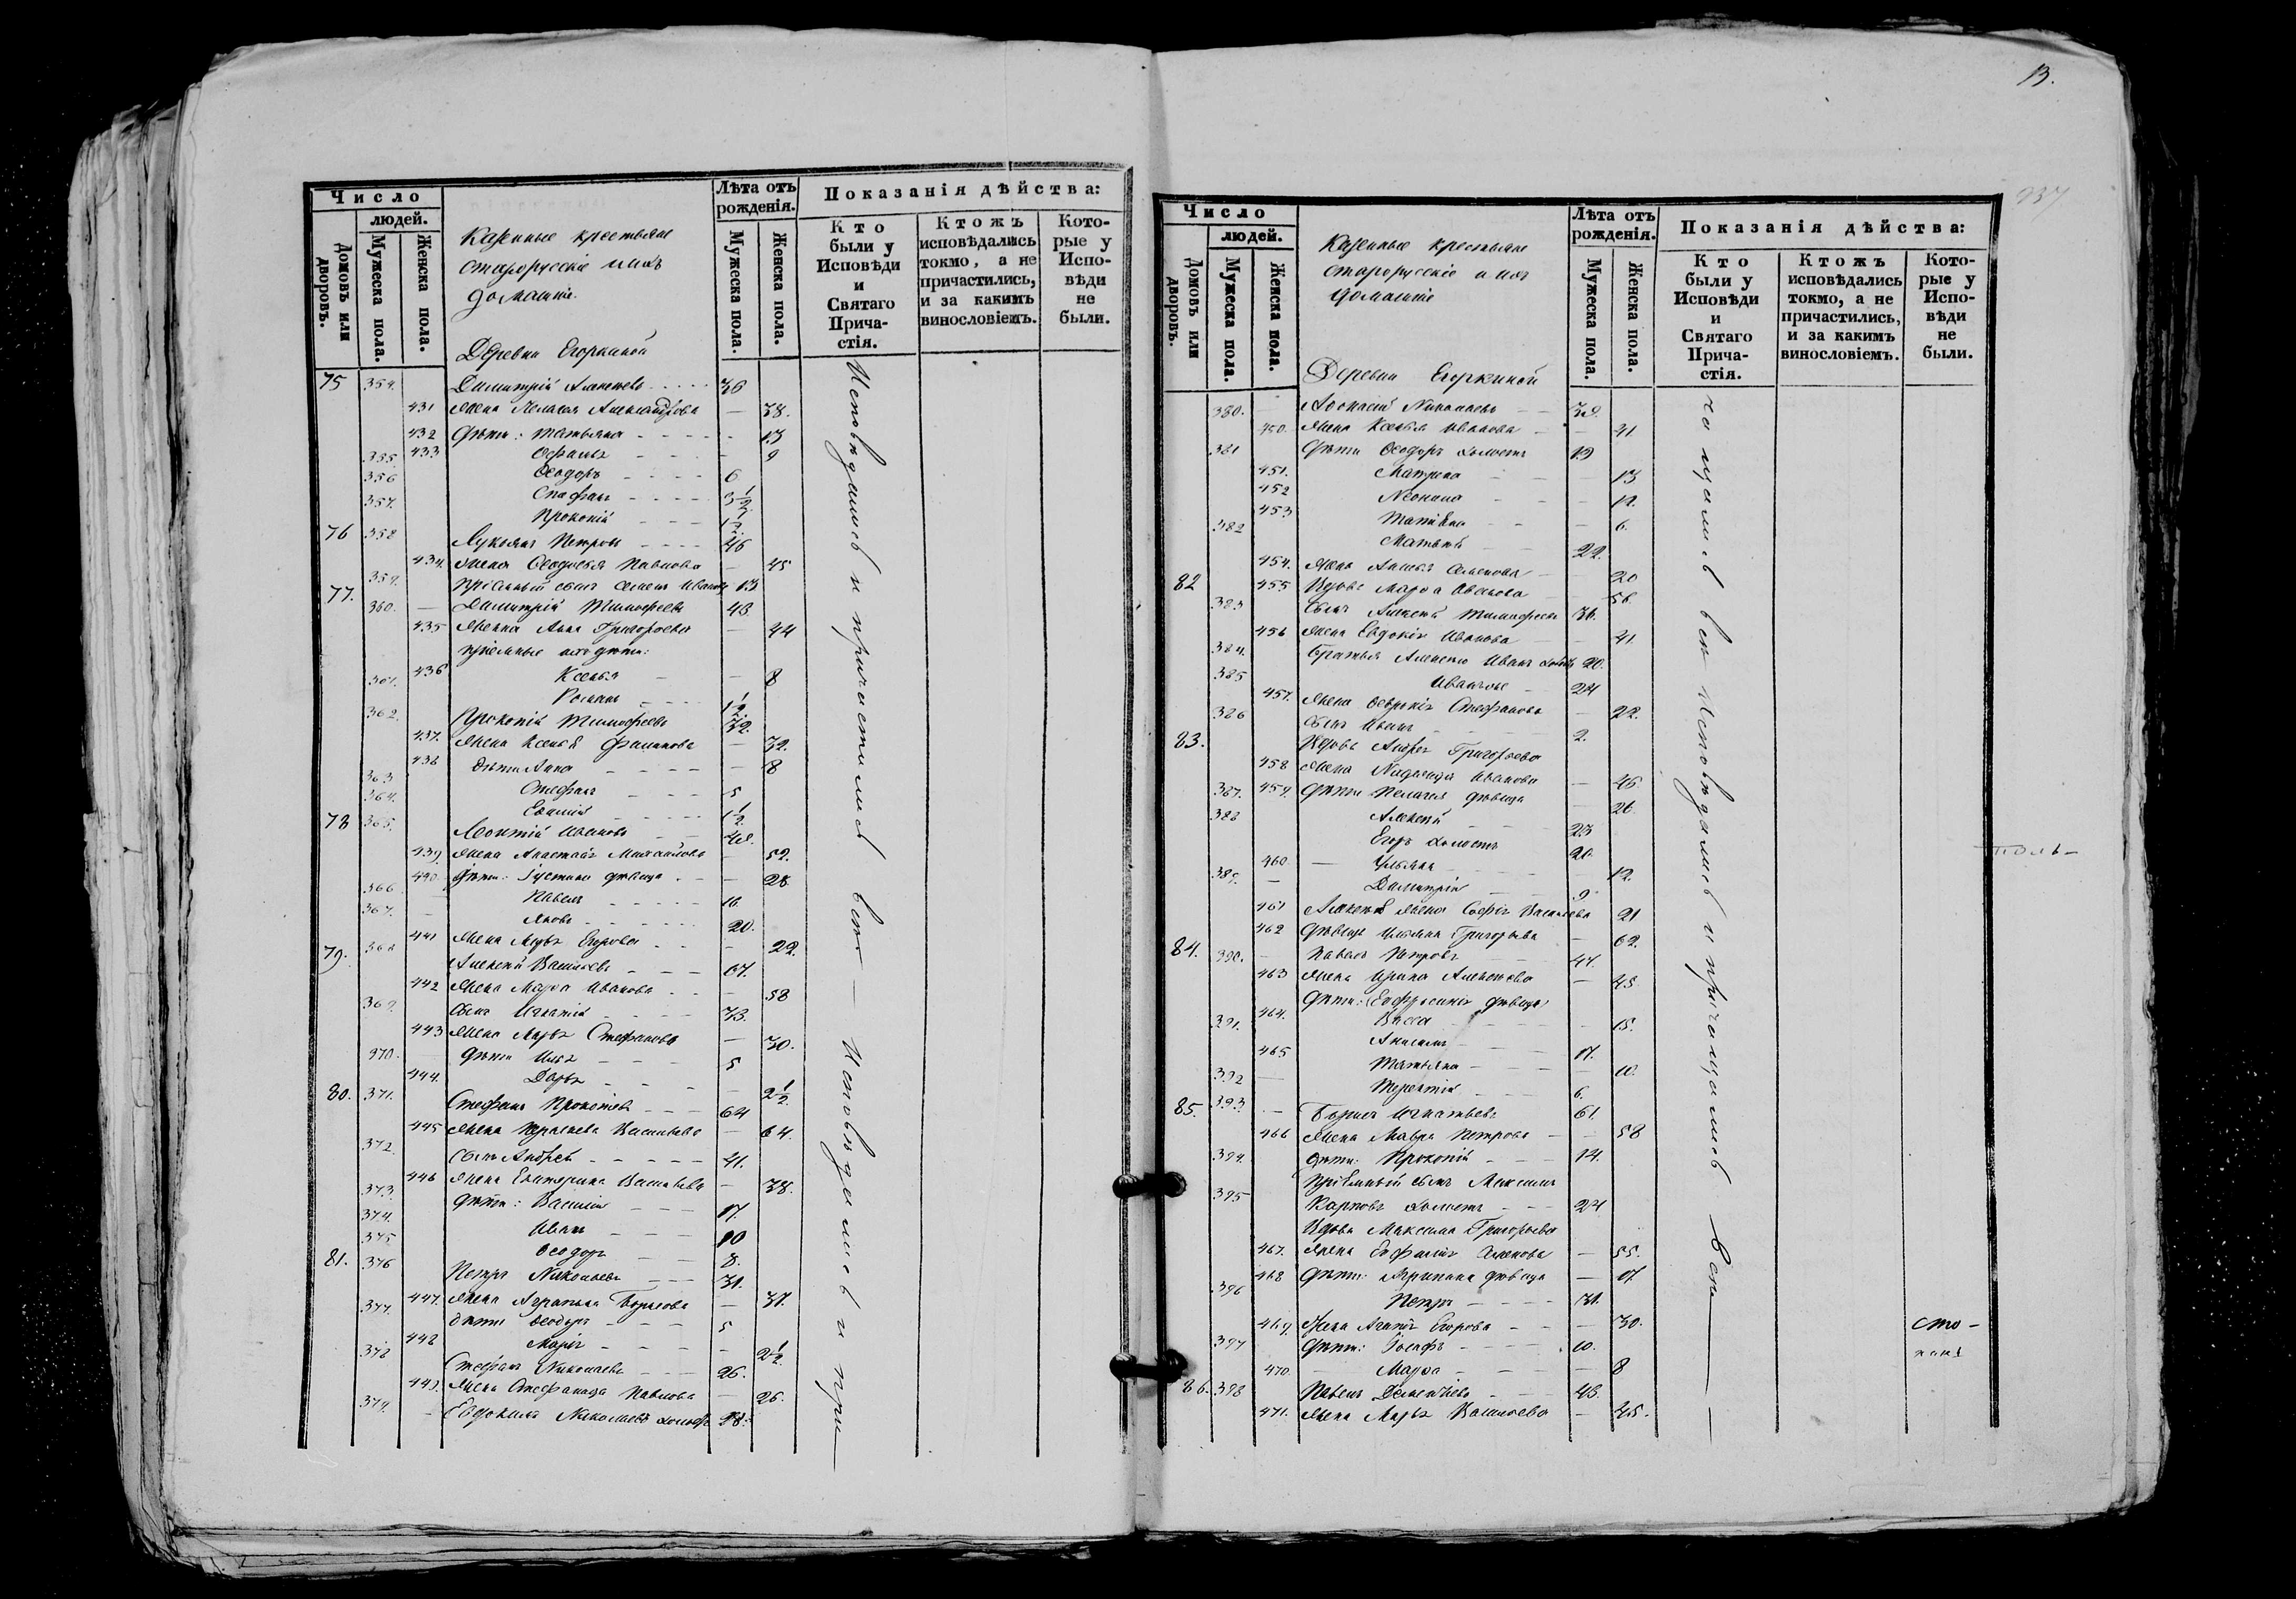 13.
937
Число
людей.
Домовъ или дворовъ.
Мужеска пола.
Женска пола.
Казенные крестьяне
старорусскіе и ихъ
домашніе.
Деревни Егоркиной
Лѣта отъ рожденія.
Мужеска пола.
Женска пола.
Показанія дѣйства:
Кто были у Исповѣди и Святаго Прича-стія.
Ктожъ исповѣдались токмо, а не причастились, и за какимъ винословіемъ.
Кото-рые у Испо-вѣди не были.
75 354. Димитрій Алексѣевъ 36
431 Жена Пелагея Александрова — 38.
432 Дѣти: Татьяна 13
355. 433 9
356 Ѳеодоръ 6
357. Стефанъ 3 1/2
Прокопій 1/2
76 358 Лукьянъ Петровъ 46
434. Жена Ѳеодосья Павлова — 45
359. Пріемный сынъ Семенъ Ивановъ 13
77. 360. — Димитрій Тимофеевъ 43
435 Женка Анна Григорьева — 44
пріемные ихъ дѣти:
361. 436 Ксенья — 8
Романъ 1/2
362. Прокопій Тимофеевъ 32.
437. Жена Ксенья Филипова — 32.
438 Дѣти Анна — 8
363 Стефанъ 5
364. Евдимій 1/2
78 365. Леонтій Ивановъ 48.
439. Жена Анастасія Михайлова — 52.
440. Дѣти: Іустина дѣвица — 28
366 Павелъ 16.
367. — Яковъ 20.
441 Жена Марья Егорова — 22.
79. 368 Алексѣй Васильевъ 67.
442 Жена Марѳа Иванова — 58
369. Сынъ Игнатій 33.
443 Жена Марья Стефанова — 30.
370. Дѣти Илья 5
444. Дарья — 2 1/2
80. 371. Стефанъ Прокопіевъ 64
445 Жена Васильева — 64.
372. Сынъ Андрей 41.
446 Жена Екатерина Васильева — 38.
373. Дѣти: Василій 17.
374. Иванъ 10
375 Ѳеодоръ 8.
81. 376 Петръ Николаевъ 31.
447. Жена Агрипина Борисова — 31.
377. Дѣти Ѳеодоръ 5
448 Марія — 2 1/2
378 Стефанъ Николаевъ 26.
449. Жена Стефанида Павлова — 26.
379. — Евдокимъ Николаевъ холостъ 18.
Исповѣдались и причастились всѣ — Исповѣдались и при—
Число
людей.
Домовъ или дворовъ.
Мужеска пола.
Женска пола.
Казенные крестьяне
старорусскіе и ихъ
домашніе
Деревни Егоркиной
Лѣта отъ рожденія.
Мужеска пола.
Женска пола.
Показанія дѣйства:
Кто были у Исповѣди и Святаго Прича-стія.
Ктожъ исповѣдались токмо, а не причастились, и за какимъ винословіемъ.
Кото-рые у Испо-вѣди не были.
380. — Аѳонасій Николаевъ 39.
450. Жена Ксенья Иванова — 41.
381 Дѣти Ѳеодоръ холостъ 19
451. Матрона — 13
452 Неонила — 12.
453 Татьяна — 6.
382 Матвѣй 22.
454. Жена Семенова — 20
82 455 Вдова Марѳа Иванова 56.
383 Сынъ Алексѣй Тимофеевъ 36.
456 Жена Евдокія Иванова — 41.
384. Братья Алексѣя Иванъ холостъ 20.
385 24
457. Жена Евдокія Стефанова — 22.
386 Сынъ Иванъ 2.
83. Вдова Андрея Григорьева
458 Жена Надежда Иванова — 46.
387. 459. Дѣти Пелагея дѣвица — 26.
388 Алексѣй 23
Егоръ холостъ 20.
460. — Ульяна 12.
389. — Димитрій 9
461 Алексѣя жена Софія Васильева 21
462 Дѣвица Ульяна Григорьева — 62.
84. 390. — Павелъ Петровъ 47.
463 Жена Ирина Алексѣева — 45.
Дѣти: (Евфросинія дѣвица)
464. Васса — 15.
391. Анисимъ 17.
465 Татьяна — 10.
392 — Терентій 6.
85. 393. — Борисъ Игнатьевъ 61.
466 Жена Мавра Петрова — 58
394. Дѣти: Прокопій 14.
Пріемный сынъ Максимъ
395 Карповъ холостъ 24
Вдова Максима Григорьева
467. Жена Евфимія Семенова — 55.
468 Дѣти: Агрипина дѣвица — 17.
396 Петръ 31.
469. Жена Агапія Егорова — 30.
397 Дѣти: Іосифъ 10.
470. — Марѳа — 8
86. 398 Павелъ Дементіевъ 43.
471. Жена Марья Васильева — 45.
чащались всѣ Исповѣдались и причащались всѣ —